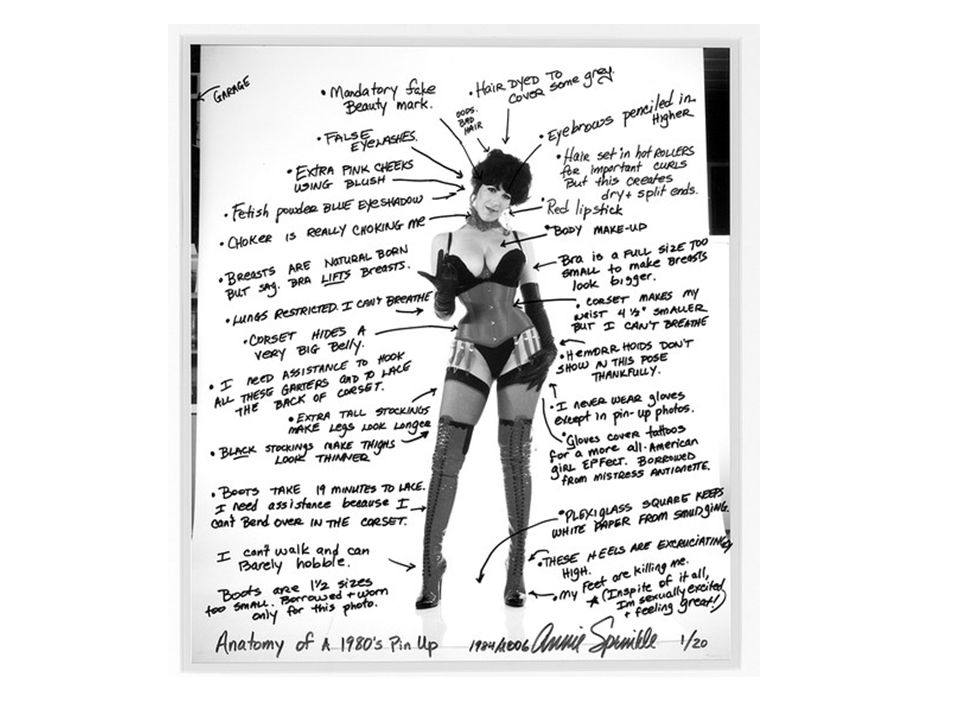 GARAGE
• Mandatory fake
Beauty mark.
• Hair DYED TO
COVER some grey.
OOPS.
BAD
HAIR
• FALSE
EYELASHES.
• Eyebrows penciled in
Higher
• EXTRA PINK CHEEKS
USING BLUSH
• Hair set in hot ROLLERS
for important CURLS
But this creates
dry + split ends.
• Fetish powder BLUE EYESHADOW
• Red lipstick
• CHOKER IS REALLY CHOKING ME
• BODY MAKE-UP
• BREASTS ARE NATURAL BORN
BUT SAG. BRA LIFTS BREASTS.
• Bra is a FULL SIZE TOO
small to make Breasts
look bigger.
• LUNGS RESTRICTED. I CAN'T BREATHE
• CORSET MAKES MY
WAIST 4 1/2" SMALLER
BUT I CAN'T BREATHE
• CORSET HIDES A
VERY BIG Belly.
• HEMORRHOIDS DON'T
SHOW IN THIS POSE
THANKFULLY.
• I NEED ASSISTANCE TO HOOK
ALL THESE GARTERS AND TO LACE
THE BACK OF CORSET.
• I NEVER WEAR gloves
except in pin-up photos.
• EXTRA TALL STOCKINGS
MAKE LEGS LOOK LONGER
• Gloves cover tattoos
for a more all-American
girl EFFECT. BORROWED
FROM MISTRESS ANTOINETTE.
• BLACK STOCKINGS MAKE THIGHS
LOOK THINNER
• BOOTS TAKE 19 MINUTES TO LACE.
I need assistance because I
can't Bend over IN THE CORSET.
• PLEXIGLASS SQUARE KEEPS
WHITE PAPER FROM SMUDGING.
I can't walk and can
Barely hobble.
• THESE HEELS ARE EXCRUCIATINGLY
HIGH.
Boots are 1 1/2 sizes
too small. Borrowed + worn
only for this photo.
• My Feet are killing me.
★ (Inspite of it all,
Im sexually excited
+ feeling great!)
Anatomy of A 1980's Pin Up 1984/2006 Annie Sprinkle 1/20